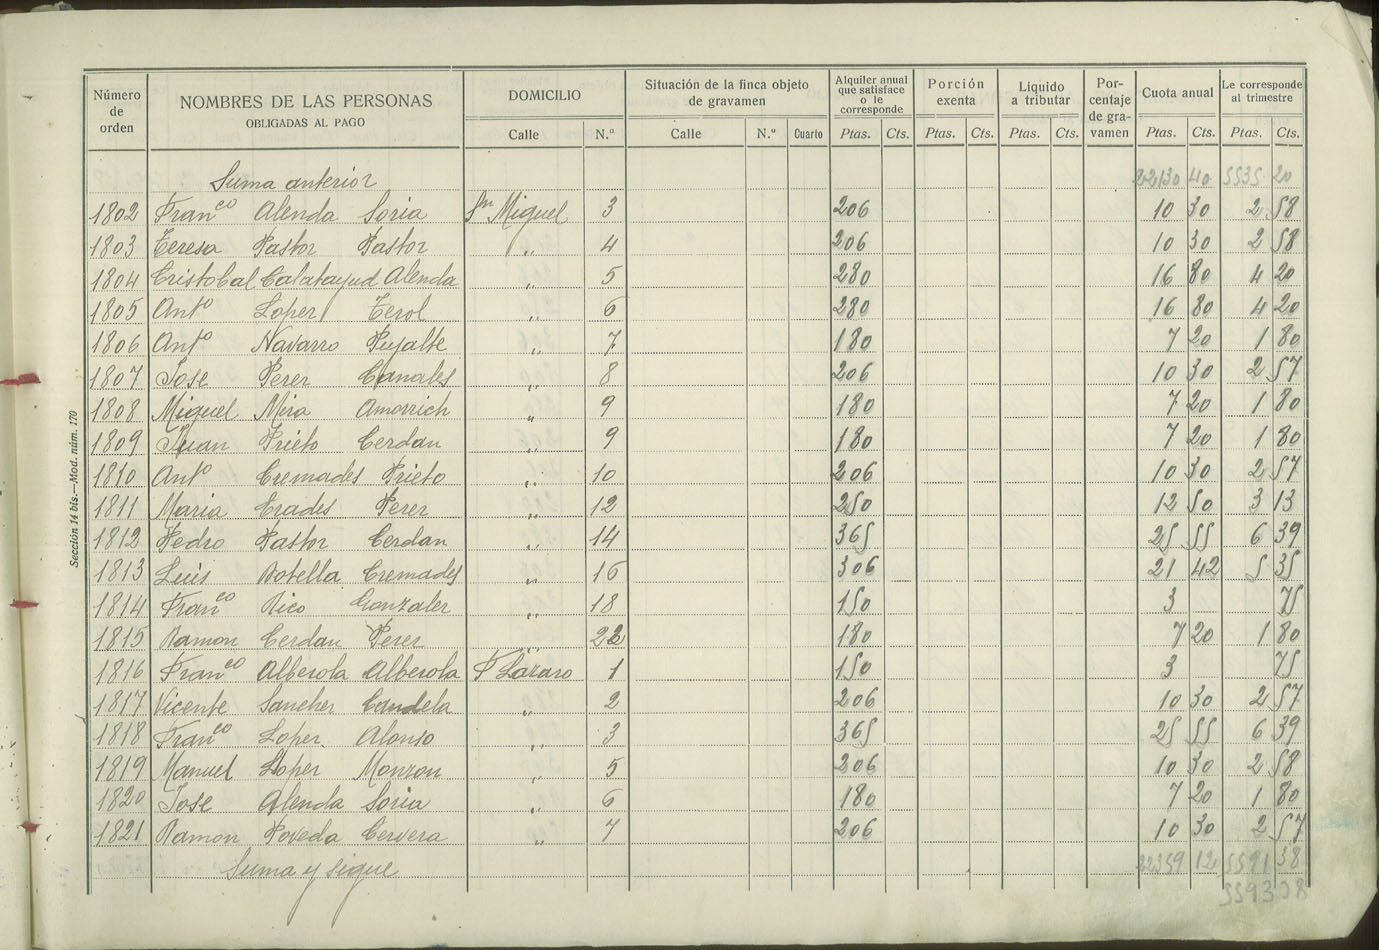 Número de orden
NOMBRES DE LAS PERSONAS
OBLIGADAS AL PAGO
DOMICILIO
Calle N.º
Situación de la finca objeto de gravamen
Calle N.º Cuarto
Alquiler anual que satisface o le corresponde
Ptas. Cts.
Porción exenta
Ptas. Cts.
Liquido a tributar
Ptas. Cts.
Por-centaje de gra-vamen
Cuota anual
Ptas. Cts.
Le corresponde al trimestre
Ptas. Cts.
Suma anterior 22130 40 5535 20
1802 Franco Alenda Soria Sn Miguel 3 206 10 30 2 58
1803 Teresa Pastor Pastor " 4 206 10 30 2 58
1804 Cristobal Calatayud Alenda " 5 280 16 80 4 20
1805 Anto Loper Terol " 6 280 16 80 4 20
1806 Anto Navarro Pujalte " 7 180 7 20 1 80
1807 Jose Perer Canales " 8 206 10 30 2 57
1808 Miguel Mira Amorrich " 9 180 7 20 1 80
1809 Juan Prieto Cerdan " 9 180 7 20 1 80
1810 Anto Cremades Prieto " 10 206 10 30 2 57
1811 Maria Crades Perer " 12 250 12 50 3 13
1812 Pedro Pastor Cerdan " 14 365 25 55 6 39
1813 Luis Botella Cremades " 16 306 21 42 5 35
1814 Franco Rico Gonzaler " 18 150 3 75
1815 Ramon Cerdan Perer " 22 180 7 20 1 80
1816 Franco Alberola Alberola P Lazaro 1 150 3 75
1817 Vicente Sancher Candela " 2 206 10 30 2 57
1818 Franco Loper Alonso " 3 365 25 55 6 39
1819 Manuel Loper Monzon " 5 206 10 30 2 58
1820 Jose Alenda Soria " 6 180 7 20 1 80
1821 Ramon Poveda Cervera " 7 206 10 30 2 57
Suma y sigue 22359 12 5591 38
5593 08
Sección 14 bis.—Mod. núm. 170